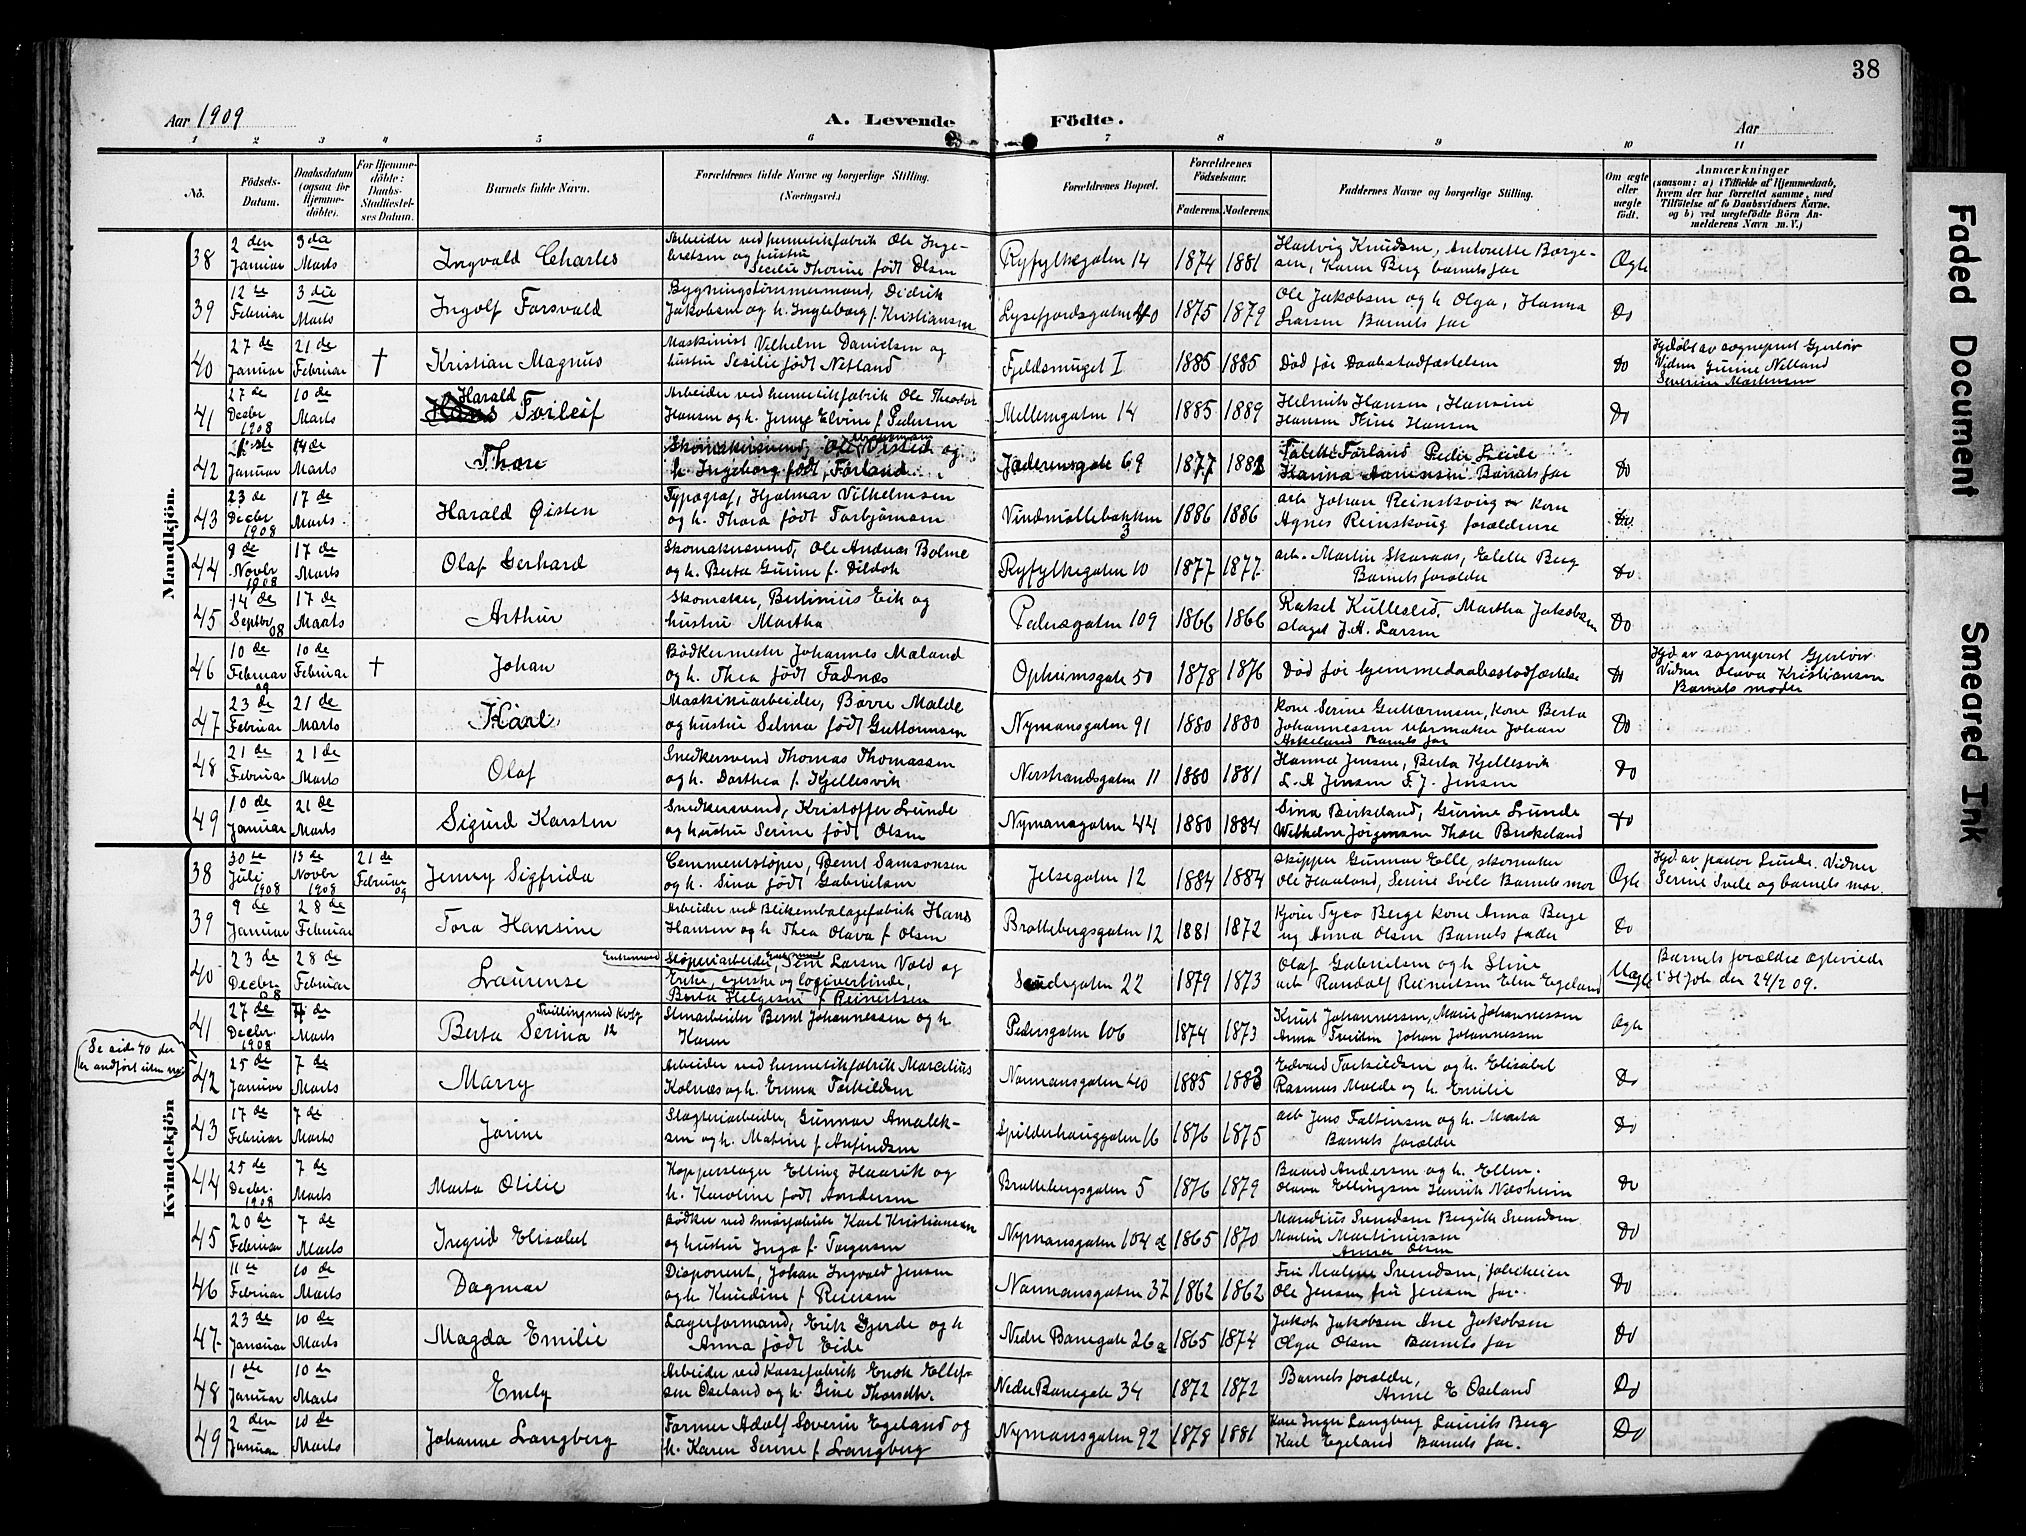 38
Aar 1909
A. Levende Födte.
Aar
1 2 3 4 5 6 7 8 9 10 11
No.
Födsels-Datum.
Daabsdatum (ogsaa for Hjemme-döbte).
For Hjemme-döbte: Daabs-Stadfæstel-ses Datum.
Barnets fulde Navn.
Forældrenes fulde Navne og borgerlige Stilling. (Næringsvei.)
Forældrenes Bopæl.
Forældrenes Födselsaar.
Faderens. Moderens.
Faddernes Navne og borgerlige Stilling.
Om ægte eller uægte födt.
Anmærkninger
(saasom: a) i Tilfælde af Hjemmedaab,
hvem der har forrettet samme, med
Tilföielse af to Daabsvidners Navne,
og b) ved uægtefödte Börn An-
melderens Navn m. V.)
Mandkjön.
38 2 den Januar 3 die Marts Ingvald Charles
Arbeider ved hermetikfabrik Ole Inge-
bretsen og hustru
Secilie Thorine født Olsen
Ryfylkegaten 14 1874 1881
Hartvig Knudsen, Antonette Borge-
sen, Karen Berg barnets far
Ægte
39 12 te Februar 3 die Marts Ingolf Torsvald
Bygningstømmermand, Didrik
Jakobsen og h. Ingleborg f. Kristiansen
Lysefjordsgaten 40 1875 1879
Ole Jakobsen og h. Olga, Hanna
Larsen Barnets far
Do
40 27 de Januar 21 de Februar † Kristian Magnus
Maskinist Vilhelm Danielsen og
hustru Sesilie født Netland
Fjeldsmuget I 1885 1885
Død før Daabsstadfæstelsen
Do
Hjdøbt av sogneprest Gjerløv
Vidner Gurine Netland
Severine Martensen
41 27 de Decbr 1908 10 de Marts Harald Torleif
Arbeider ved hermetikfabrik Ole Theodor
Hansen og h. Jenny Elvine f. Pedersen
Mellemgaten 14 1885 1889
Helmik Hansen, Hansine
Hansen Trine Hansen
Do
42 Januar 14 de Marts Thore
h. Ingeborg født Førland
Jæderensgate 69 1877
Førland Peder
Barnets far
Do
43 23 de Decbr 1908 17 de Marts Harald Øisten
Typograf, Hjalmar Vilhelmsen
og h. Thora født Torbjørnsen
Vindmøllebakken 3 1886 1886
arb Johan Reinskoug kone
Agnes Reinskoug forældrene
Do
44 Novbr 1908 17 de Marts Olaf Gerhard
Skomakersvend, Ole Andreas Bolme
og h. Berta Gurine f. Dildok
Ryfylkegaten 10 1877 1877
arb. Martin Skaraas, Elette Berg
Barnets forældre
Do
45 14 de Septbr 08 17 de Marts Arthur
Skomaker, Bertinius Eik og
hustru Martha
Pedersgaten 109 1866 1866
Rakel Kulleseid, Martha Jakobsen
slagt J.A. Larsen
Do
46 10 de Februar 09 10 de Februar † Johan
Bødkermester Johannes Mæland
og h. Thea født Fadnes
Opheimsgate 50 1878 1876
Død før hjemmedaabsstadfæstelse
Do
Hjd av sogneprest Gjerløv
Vidner Olava Kristiansen
Barnets moder
47 23 de Februar 21 de Marts Karl
Maskinarbeider, Børre Malde
og hustru Selma født Guttormsen
Nymansgaten 91 1880 1880
kone Serine Guttormsen, kone Berta
Johannessen Uhrmaker Johan
Askeland Barnets far
Do
48 21 de Februar 21 de Marts Olaf
Snedkersvend Thomas Thomassen
og h. Dorthea f. Kjellesvik
Nerstrandsgaten 11 1880 1881
Hanna Jensen, Berta Kjellesvik
L. A Jensen F. J. Jensen
Do
49 10 de Januar 21 de Marts Sigurd Karsten
Snedkersvend, Kristoffer Lunde
og hustru Serine født Olsen
Nymansgaten 44 1880 1884
Sina Birkeland, Gurine Lunde
Wilhelm Jørgensen Thore Birkeland
Do
Kvindekjön
38 30 te Juli 1908 15 de Novbr 1908 21 de Februar 09 Jenny Sigfrida
Cementstøper, Bernt Samsonsen
og h. Sina født Gabrielsen
Jelsegaten 12 1884 1884
skipper Gunnar Elle, skomaker
Ole Haaland, Serine Svele Barnets mor
Ægte
Hjd. av pastor Lunde. Vidner
Serine Svele og barnets mor.
39 9 de Januar 28 de Februar Tora Hansine
Arbeider ved Blikemballagefabrik Hans
Hansen og h. Thea Olava f. Olsen
Brattebergsgaten 12 1881 1872
Kjører Tyco Berge kone Anna Berge
og Anna Olsen Barnets fader
Do
40 23 de Decbr 08 28 de Februar Laurense
Enkemand Støperiarbeider, Larsen Vold og
Enke, og logiverlinde,
Berta Helgesen f. Reinertsen
22 1879 1873
Olaf Gabrielsen og h. Stine
arb Randolf Reinertsen Elen Egeland
Uægte
Barnets forældre ægteviede
i St Joh den 24/2 09.
41 27 de Decbr 1908 Marts Berta Serina Tvilling med 12
Stenarbeider Bernt Johannessen og h.
Karen
Pedersgaten 106 1874 1873
Knut Johannessen, Marie Johannessen
Anna Johan Johannessen
Ægte
Se side 40 der
er andført uten no
42 25 de Januar 7 de Marts Marry
Arbeider ved hermetikfabrik Marcelius
Kolnæs og h. Emma Torkildsen
Normansgaten 40 1885 1883
Edvard Torkildsen og h. Elisabet
Rasmus Malde og h. Emilie
Do
43 17 de Februar 7 de Marts Jorine
Slagteriarbeider, Gunnar Amalek-
sen og h. Matine f. Arfindsen
Spilderhauggaten 16 1876 1875
arb Jens Faltinsen og h. Marta
Barnets forældre
Do
44 25 de Decbr. 1908 7 de Marts Marta Otilie
Kopperslager Elling Haarik og
h. Karoline født Andersen
Brattebergsgaten 5 1876 1879
Baard Andersen og h. Ellen.
Olava Ellingsen Henrik Nilsheim
Do
45 20 de Februar 7 de Marts Ingrid Elisabet
Bødker ved smørfabrik Karl Kristiansen
og hustru Inga f. Torgersen
Nymansgaten 104 a 1865 1870
Mandius Svendsen Bergith Svendsen
Martin Martinussen
Anna Olsen
Do
46 11 te Februar 10 de Marts Dagmar
Disponent, Johan Ingvald Jensen
og h. Knudine f. Reiersen
Normansgaten 37 1862 1862
Fru Malene Svendsen,
Ole Jensen fru Jensen far.
Do
47 23 de Januar 10 de Marts Magda Emilie
Lagerformand, Erik Gjerde og h
Anna født Eide
Nedre Banegate 26a 1865 1874
Jakob Jakobsen Ane Jakobsen
Olga Olsen Barnets far
Do
48 1 ste Januar 10 de Marts Emely
Arbeider ved Kassefabrik Enok Ellef-
sen Øseland og h. Gine Thorsdtr.
Nedre Banegate 34 1872 1872
Barnets forældre,
Anne E Øseland
Do
49 2 den Januar 10 de Marts Johanne Langberg
Former Adolf Severin Egeland og
h. Karen Serine f. Langberg
Nymansgaten 92 1878 1881
Kone Inger Langberg Laurits Berg
Karl Egeland Barnets far.
Do
Faded Document
Smeared Ink